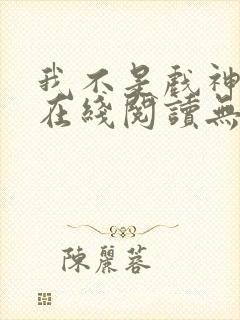 我不是戲神
在綫閱讀無
陳麗蓉